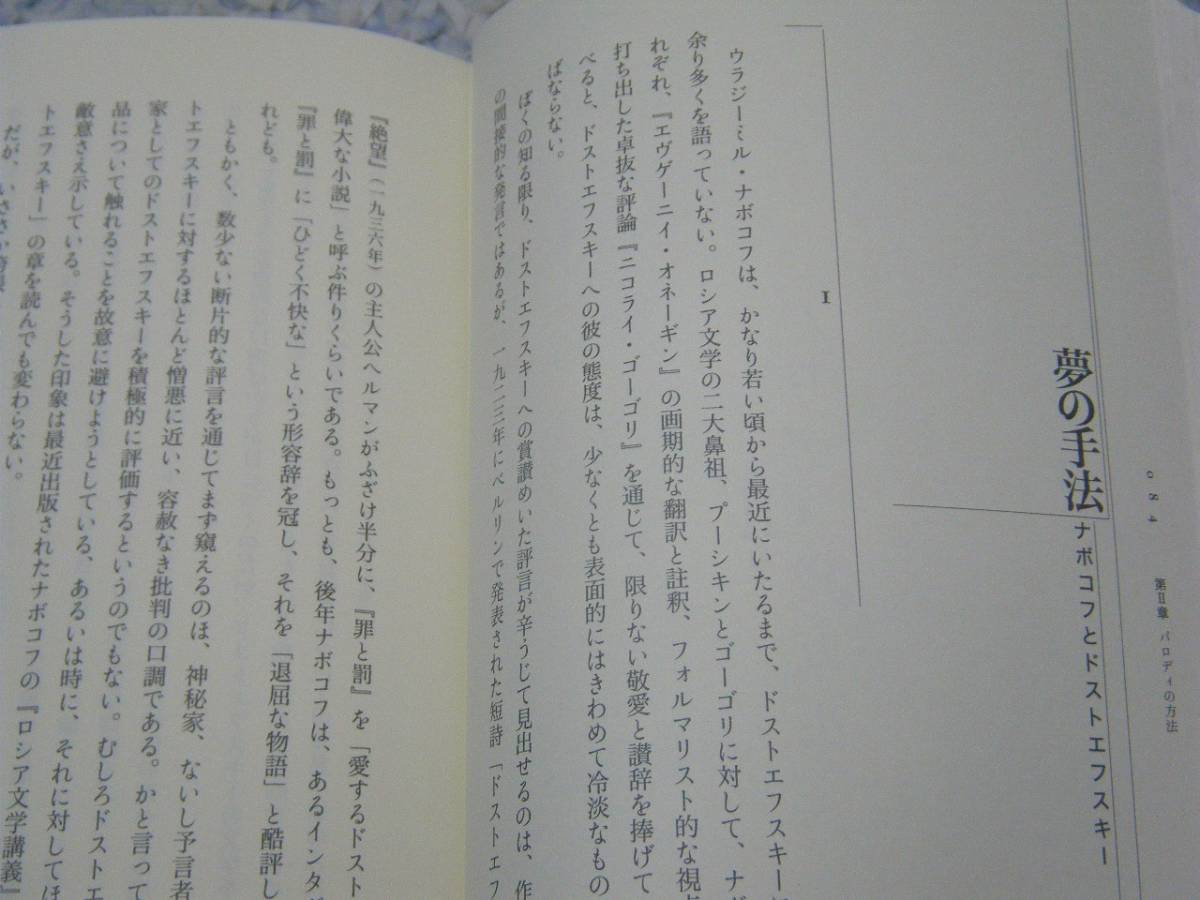 084
第Ⅱ章 パロディの方法
夢の手法
ナボコフとドストエフスキー
I
ウラジーミル・ナボコフは、かなり若い頃から最近にいたるまで、ドストエフスキーに
余り多くを語っていない。ロシア文学の二大鼻祖、プーシキンとゴーゴリに対して、ナボ
れぞれ、『エヴゲーニイ・オネーギン』の画期的な翻訳と註釈、フォルマリスト的な視点
打ち出した卓抜な評論『ニコライ・ゴーゴリ』を通じて、限りない敬愛と讃辞を捧げて
べると、ドストエフスキーへの彼の態度は、少なくとも表面的にはきわめて冷淡なもの
ばならない。
ぼくの知る限り、ドストエフスキーへの賞讃めいた評言が辛うじて見出せるのは、作
の間接的な発言ではあるが、一九二三年にベルリンで発表された短詩「ドストエフ
『絶望』（一九三六年）の主人公ヘルマンがふざけ半分に、『罪と罰』を「愛するドスト
偉大な小説」と呼ぶ件りくらいである。もっとも、後年ナボコフは、あるインタ
『罪と罰』に「ひどく不快な」という形容辞を冠し、それを「退屈な物語」と酷評し
れども。
ともかく、数少ない断片的な評言を通じてまず窺えるのは、神秘家、ないし予言者
トエフスキーに対するほとんど憎悪に近い、容赦なき批判の口調である。かと言って
家としてのドストエフスキーを積極的に評価するというのでもない。むしろドストエ
品について触れることを故意に避けようとしている、あるいは時に、それに対してほ
敵意さえ示している。そうした印象は最近出版されたナボコフの『ロシア文学講義』
トエフスキー」の章を読んでも変わらない。
だが、いささか